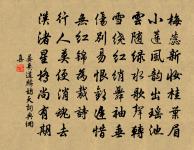 梅蕊新妝桂葉眉
小蓮風韻出瑤池
雲隨綠水歌聲轉
雪繞紅綃舞袖垂
傷別易恨歡遲惜
無紅錦為裁詩
行人莫便消魂去
漢渚星橋尚有期
晏幾道鷓鴣天詞